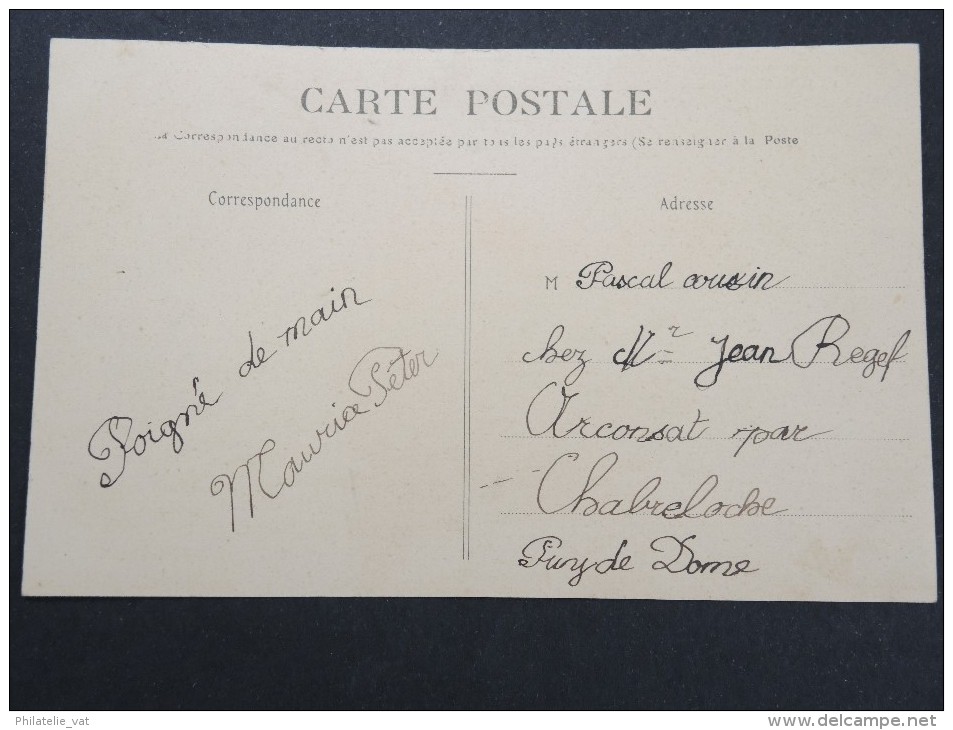 CARTE POSTALE
La Correspondance au recto n'est pas acceptée par tous les pays étrangers (Se renseigner à la Poste
Correspondance
Poigné de main
Maurice Péter
Adresse
M Pascal cousin
chez Mr Jean Regef
Arconsat par
Chabreloche
Puy de Dome
Philatelie_vat
www.delcampe.net